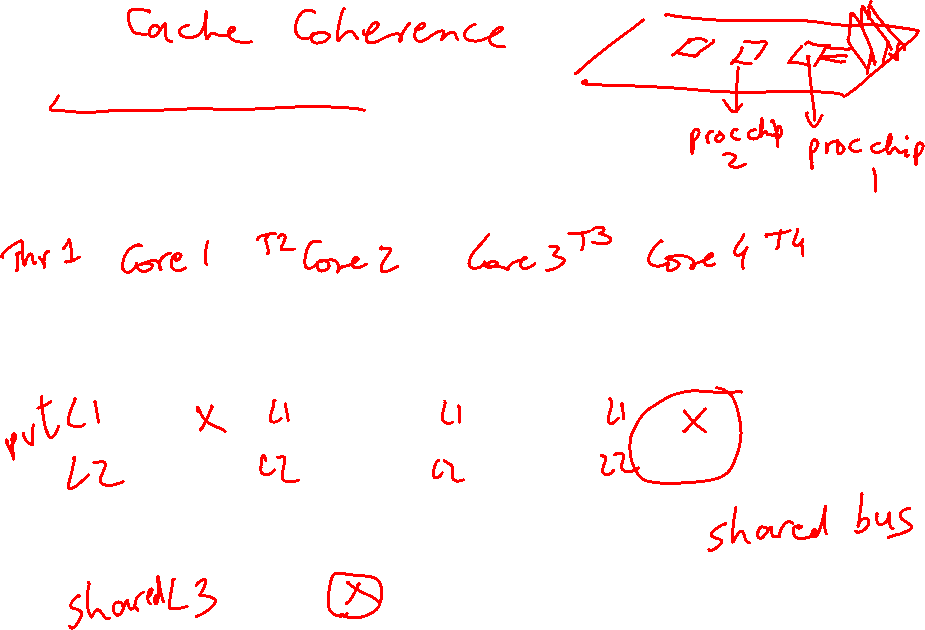 Cache Coherence
proc chip
2
proc chip
1
Thr 1 Core 1 T2 Core 2 Core 3 T3 Core 4 T4
pvt L1 X L1 L1 L1 X
L2 L2 L2 L2
shared bus
shared L3 X